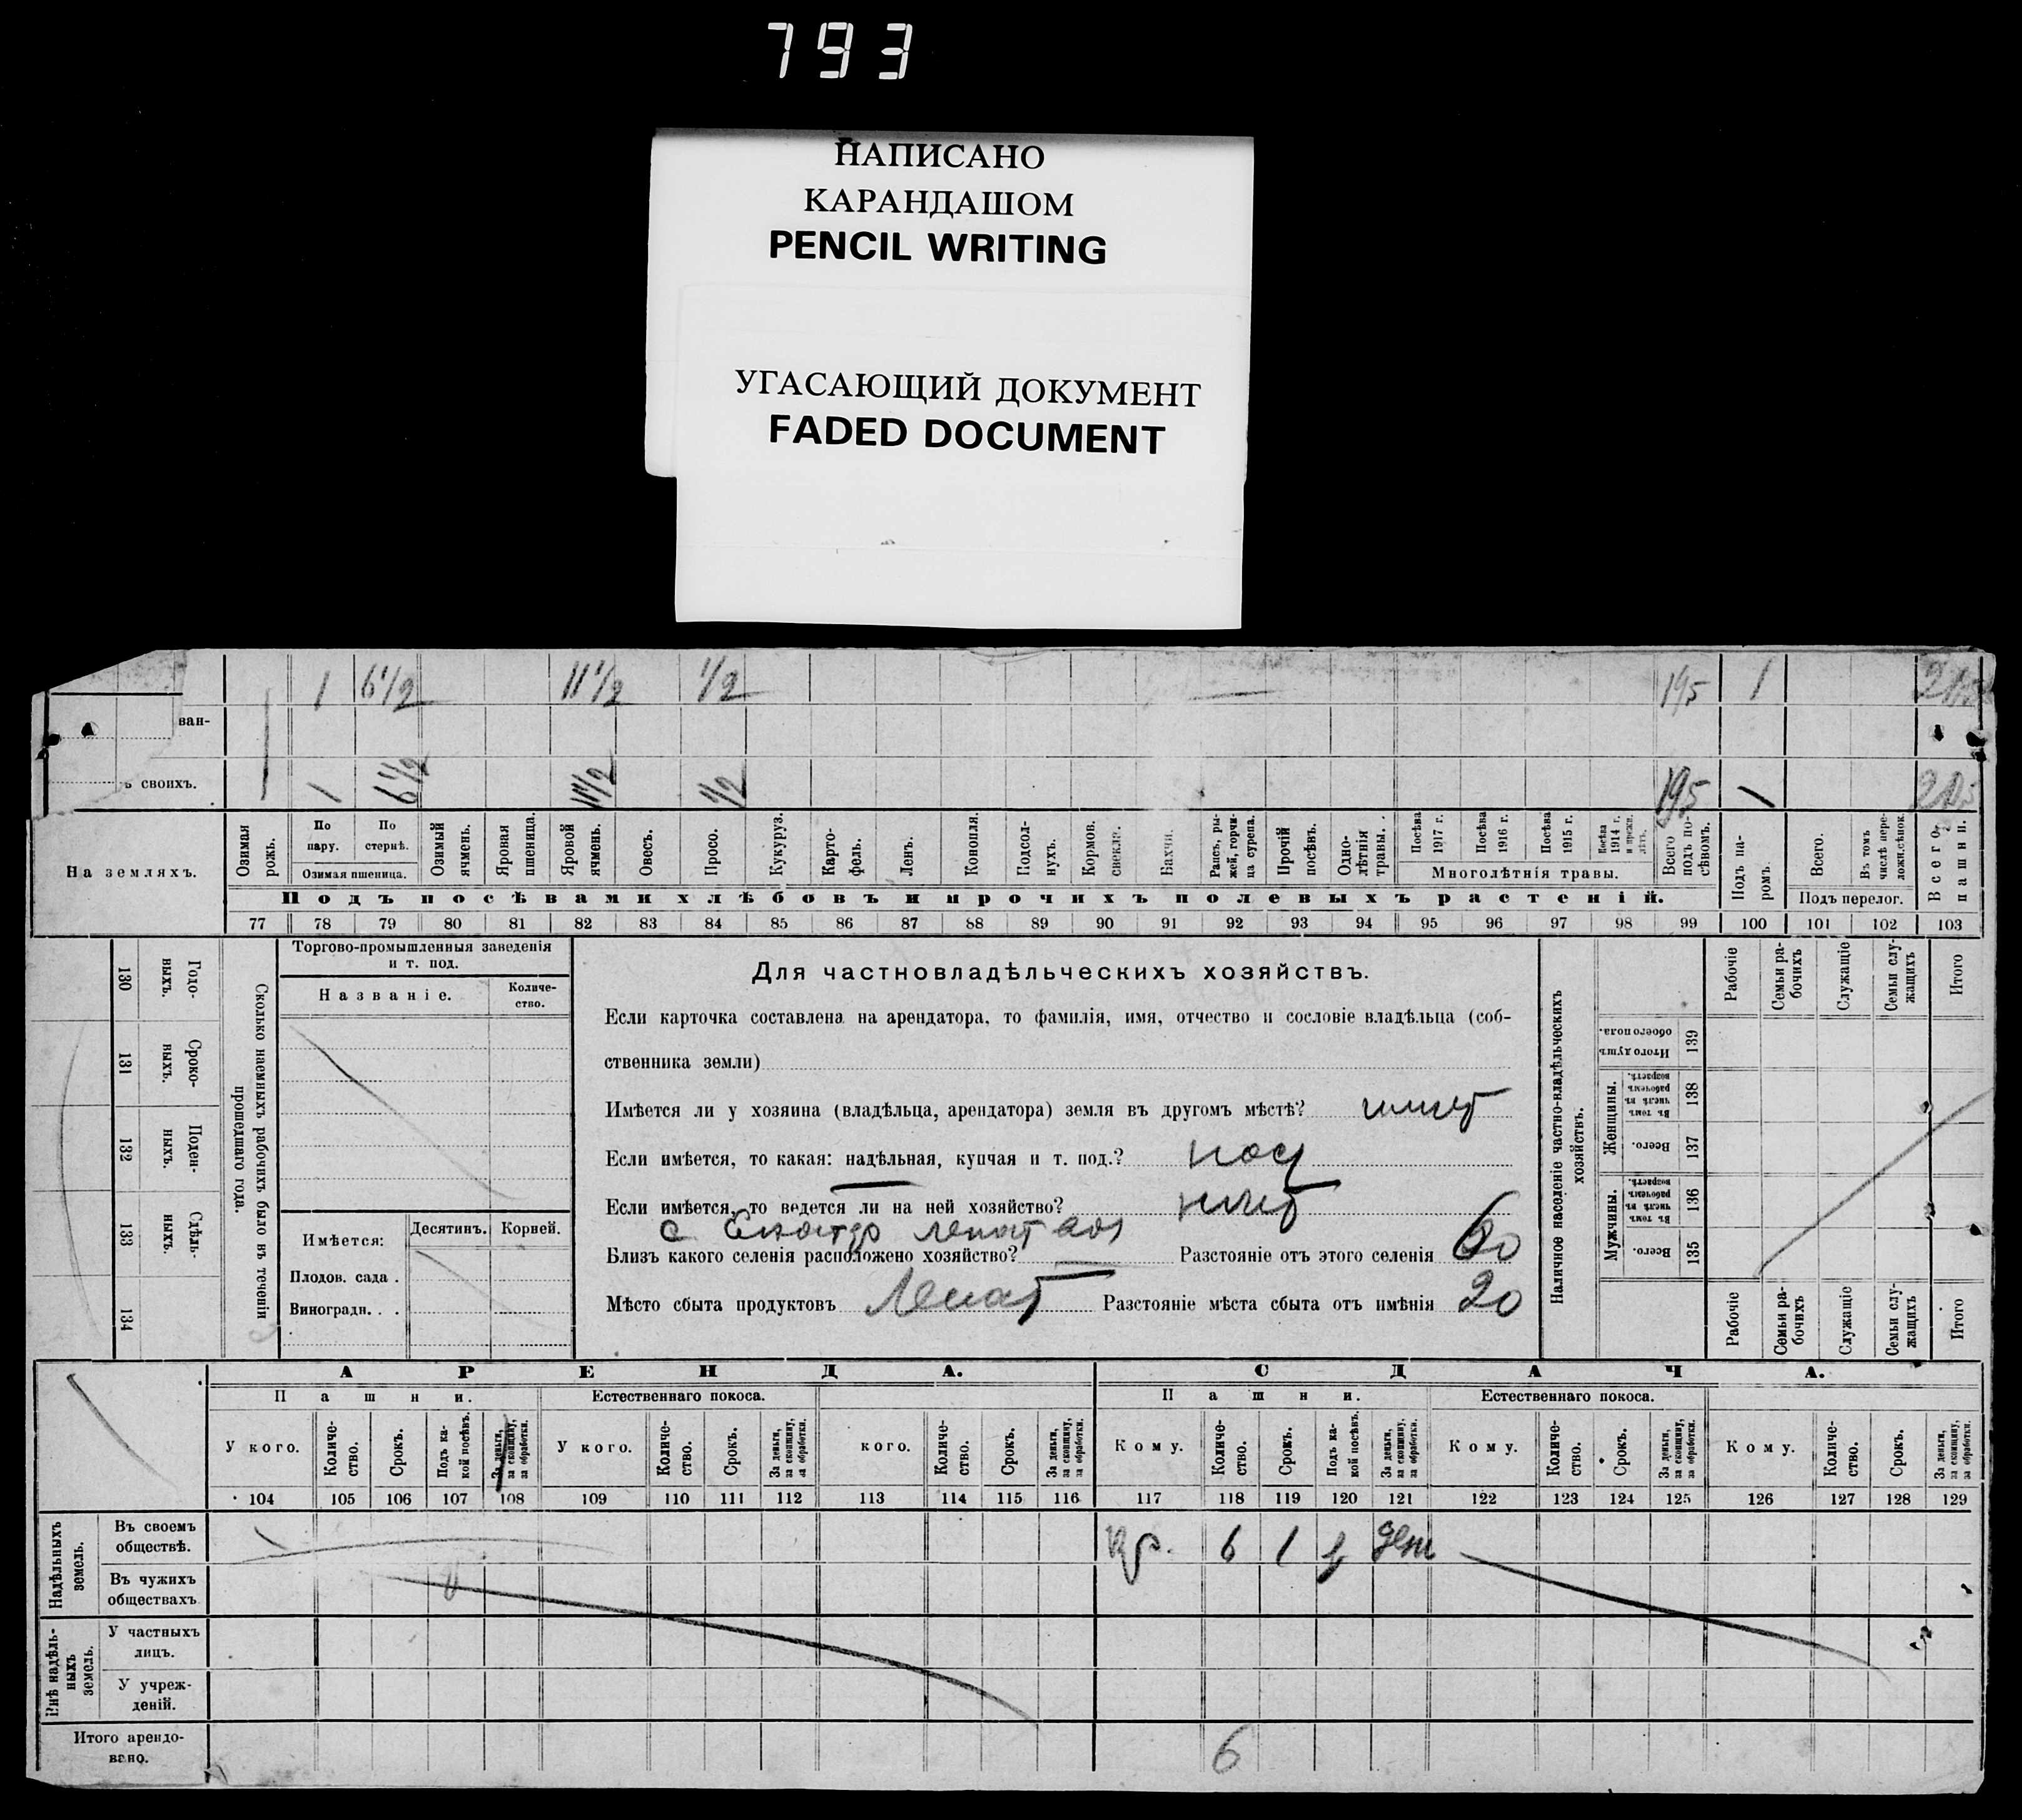 793
НАПИСАНО
КАРАНДАШОМ
PENCIL WRITING
УГАСАЮЩИЙ ДОКУМЕНТ
FADED DOCUMENT
1 6 1/2 11 1/2 1/2 195 1
ван-
ъ своихъ. 1 6 1/2 11 1/2 1/2 195 1
На земляхъ.
Озимая рожь.
По пару.
По стернѣ.
Озимая пшеница.
Озимый ячмень.
Яровая пшеница.
Яровой ячмень.
Овесъ.
Просо.
Кукуруз.
Карто-
фель.
Ленъ.
Конопля.
Подсол-
нухъ.
Кормов.
свекла.
Бахчи.
Рапсъ, ры-
жей, горчи-
ца сурепа.
Прочій
посѣвъ.
Одно-
лѣтнія
травы.
Посѣва
1917 г.
Посѣва
1916 г.
Посѣва
1915 г.
Посѣва
1914 г.
и прежн.
лѣтъ.
Многолѣтнія травы.
Всего
подъ по-
сѣвомъ.
Подъ па-
ромъ.
Всего.
Въ томъ
числѣ пере-
ложн.сѣнок.
Подъ перелог.
Всего
пашни.
Подъ посѣвами хлѣбовъ и прочихъ полевыхъ растеній.
77 78 79 80 81 82 83 84 85 86 87 88 89 90 91 92 93 94 95 96 97 98 99 100 101 102 103
130 Годо-
ныхъ.
131 Сроко-
ныхъ.
132 Поден-
ныхъ.
133 Сдѣль-
ныхъ.
134
Сколько наемныхъ рабочихъ было въ теченіи
прошедшаго года.
Торгово-промышленныя заведенія
и т. под.
Названіе.
Количе-
ство.
Имѣется:
Десятинъ. Корней.
Плодов. сада .
Виноградн. . .
Для частновладѣльческихъ хозяйствъ.
Если карточка составлена на арендатора, то фамилія, имя, отчество и сословіе владѣльца (соб-
ственника земли)
Имѣется ли у хозяина (владѣльца, арендатора) земля въ другомъ мѣстѣ?
Если имѣется, то какая: надѣльная, купчая и т. под.?
Если имѣется, то ведется ли на ней хозяйство?
Близъ какого селенія расположено хозяйство? Разстояніе отъ этого селенія
Мѣсто сбыта продуктовъ Разстояніе мѣста сбыта отъ имѣнія 20
Наличное населеніе частно-владѣльческихъ
хозяйствъ.
Мужчины.
Всего. 135
Въ томъ
числѣ въ
рабочемъ
возрастѣ. 136
Женщины.
Всего. 137
Въ томъ
числѣ въ
рабочемъ
возрастѣ. 138
Итого душъ
обоего пола. 139
Рабочіе
Семьи ра-
бочихъ
Служащіе
Семьи слу-
жащихъ
Итого
Рабочіе
Семьи ра-
бочихъ
Служащіе
Семьи слу-
жащихъ
Итого
АРЕНДА. СДАЧА.
Пашни. Естественнаго покоса. Пашни. Естественнаго покоса.
У кого.
Количе-
ство.
Срокъ.
Подъ ка-
кой посѣвъ.
За деньги,
за скопщину,
за обработки.
У кого.
Количе-
ство.
Срокъ.
За деньги,
за скопщину,
за обработки.
кого.
Количе-
ство.
Срокъ.
За деньги,
за скопщину,
за обработки.
Кому.
Количе-
ство.
Срокъ.
Подъ ка-
кой посѣвъ.
За деньги,
за скопщину,
за обработки.
Кому.
Количе-
ство.
Срокъ.
За деньги,
за скопщину,
за обработки.
Кому.
Количе-
ство.
Срокъ.
За деньги,
за скопщину,
за обработки.
104 105 106 107 108 109 110 111 112 113 114 115 116 117 118 119 120 121 122 123 124 125 126 127 128 129
Надѣльныхъ
земель.
Въ своемъ
обществѣ. Кр. 6 1
Въ чужихъ
обществахъ
Внѣ надѣль-
ныхъ
земель.
У частныхъ
лицъ.
У учреж-
деній.
Итого арендо-
вано. 6